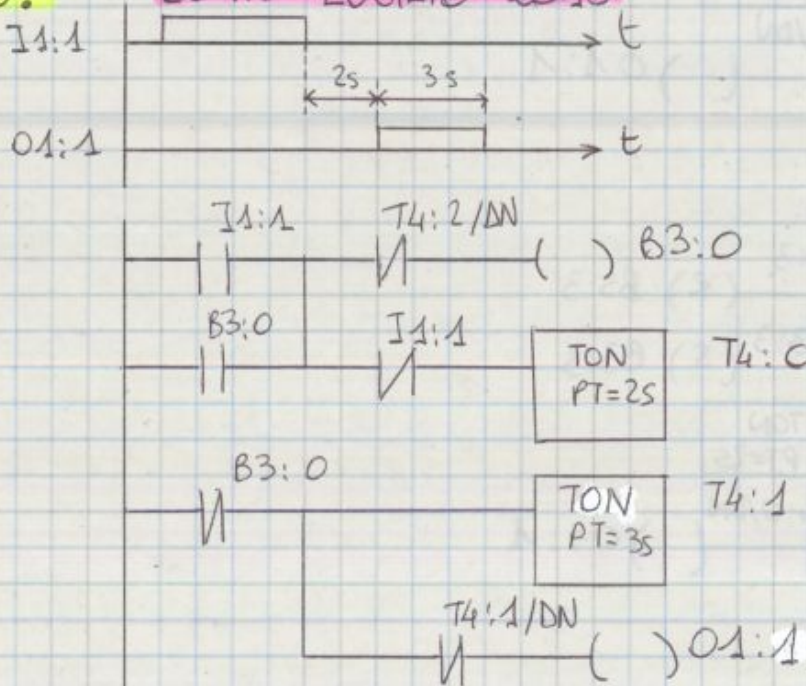 I1:1
t
2s 3s
O1:1
t
I1:1 T4:2/DN
( ) B3:0
B3:0 I1:1
TON T4:0
PT=2s
B3:0
TON T4:1
PT=3s
T4:1/DN
( ) O1:1